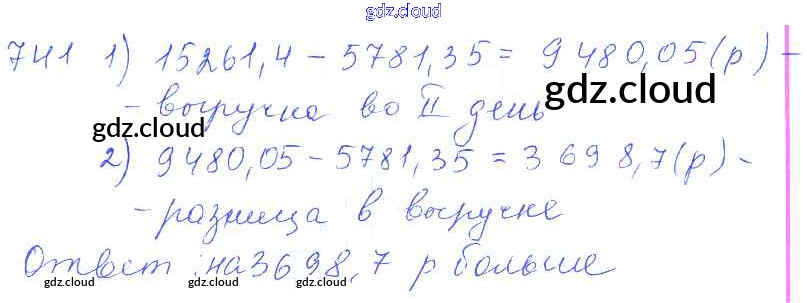 gdz.cloud
741 1) 15261,4 - 5781,35 = 9480,05 (р) -
- выручка во II день
gdz.cloud
gdz.cloud
2) 9480,05 - 5781,35 = 3698,7 (р) -
- разница в выручке
Ответ: на 3698,7 р больше
gdz.cloud gdz.cloud